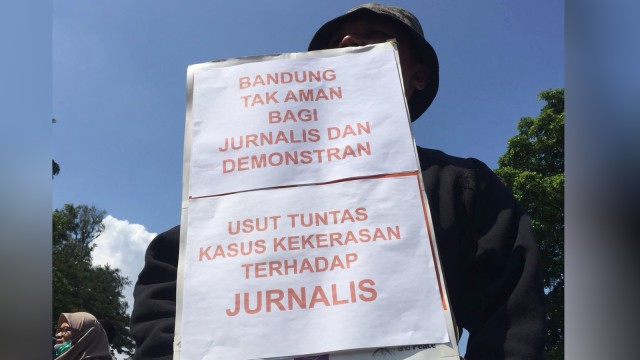 BANDUNG
TAK AMAN
BAGI
JURNALIS DAN
DEMONSTRAN
USUT TUNTAS
KASUS KEKERASAN
TERHADAP
JURNALIS